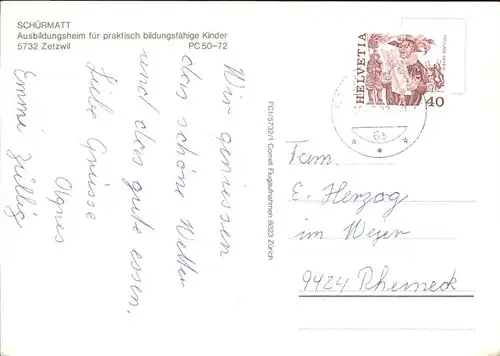 SCHÜRMATT
Ausbildungsheim für praktisch bildungsfähige Kinder
5732 Zetzwil PC 50-72
Wir geniessen
das schöne Wetter
und das gute essen.
Liebe Grüsse
Agnes
Emmi Züllig
FC1/5732/1 Comet Flugaufnahmen 8023 Zürich
HELVETIA
40
6h
Fam.
E. Herzog
im Weier
9424 Rheineck